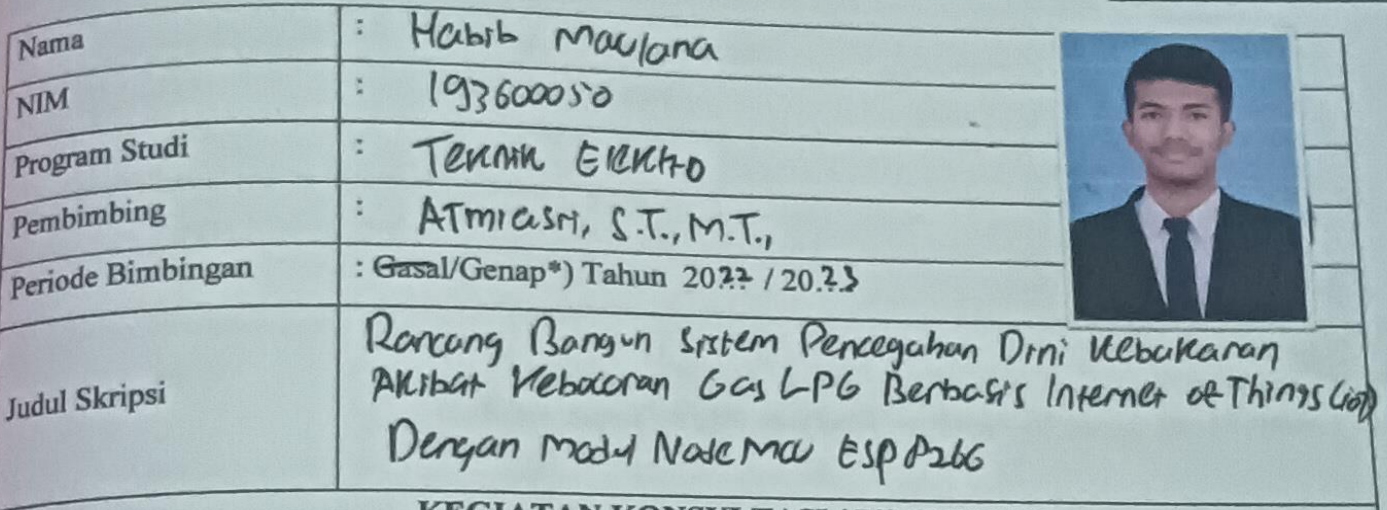 Nama : Habib Maulana
NIM : 193600050
Program Studi : Teknik Elektro
Pembimbing : ATmiasri, S.T., M.T.,
Periode Bimbingan : Gasal/Genap*) Tahun 2022 / 2023
Judul Skripsi
Rancang Bangun Sistem Pencegahan Dini Kebakaran
Akibat Kebocoran Gas LPG Berbasis Internet of Things (iot)
Dengan Modul NodeMCU ESP8266